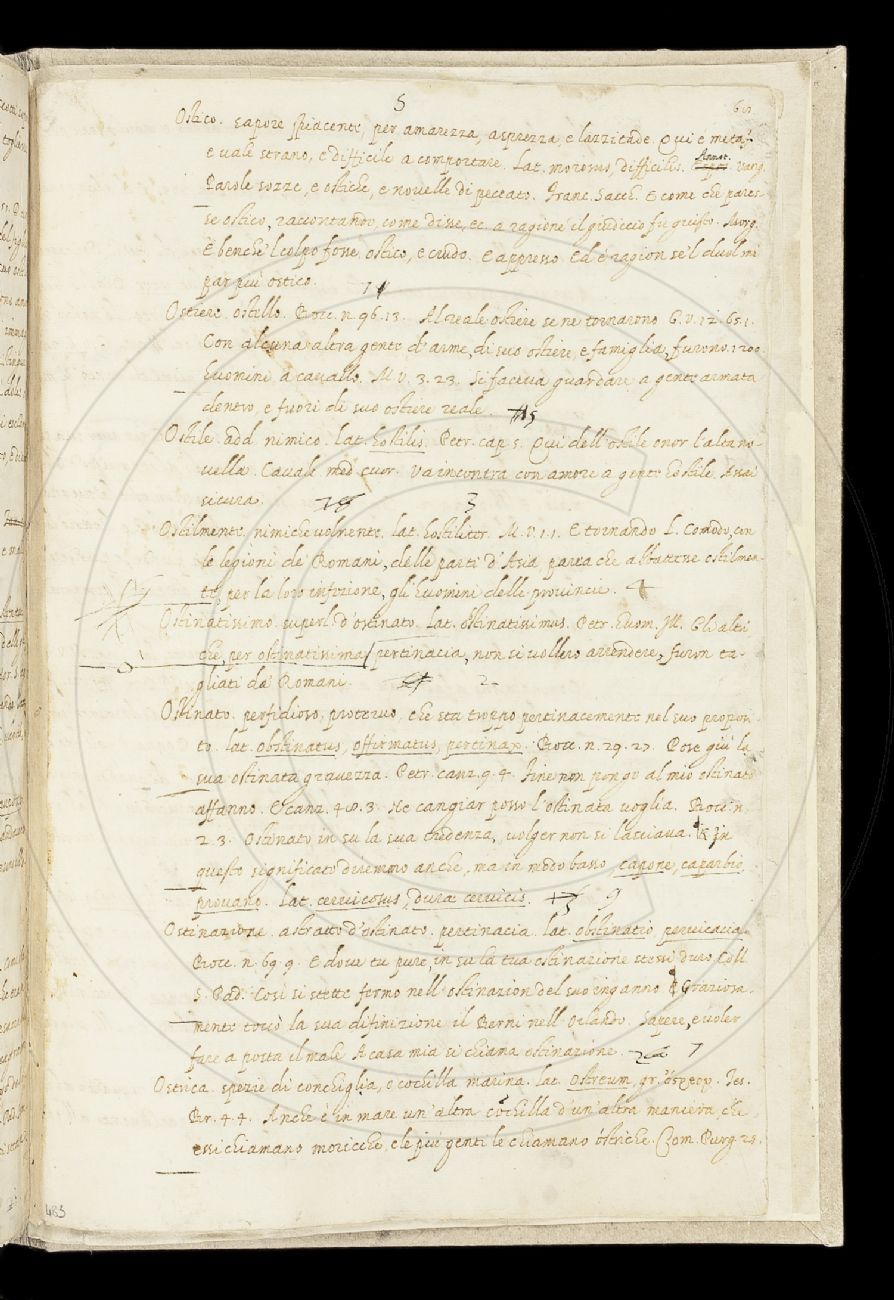 5
Ostico. sapore spiacente, per amarezza, asprezza, e lazzitade. Qui è metaf.
e vale strano, e difficile a comportare. Lat. morosus, difficilis. Annot. Vang.
Parole sozze, e ostiche, e novelle di peccato. Franc. Sacch. E come che pares-
se ostico, raccontando, come disse, ec. a ragione il giudicio fu giusto. Morg.
E benche 'l colpo fosse ostico, e crudo. E appresso. Ed è ragion se 'l duol mi
par più ostico.
Ostiere. ostello. Bocc. n. 96. 13. Al reale ostiere se ne tornarono. G. V. 12. 65. 1.
Con alcuna altra gente d'arme, di suo ostiere, e famiglia, furono. 1200
huomini a cavallo. M. V. 3. 23. Si faceva guardare, a gente armata
dentro, e fuori di suo ostiere reale. 15
Ostile. add. nimico. lat. hostilis. Petr. cap. 5. Qui dell'ostile onor l'alta no-
vella. Cavalc. med. cuor. Va incontra con amore a gente hostile, assai
sicura. 3
Ostilmente. nimichevolmente. lat. hostiliter. M. V. 1. 1. E tornando L. Comodo, con
le legioni de' Romani, delle parti d'Asia, parea che abbattesse ostilmen-
te, per la loro infezione, gli huomini delle provincie. 4
Ostinatissimo. superl. d'ostinato. Lat. ostinatissimus. Petr. huom. Ill. Gli altri
che, per ostinatissima pertinacia, non si vollero arrendere, furon ta-
gliati da' Romani. 2
Ostinato. perfidioso, protervo, che sta troppo pertinacemente nel suo proposi-
to. lat. obstinatus, offirmatus, pertinax. Bocc. n. 29. 27. Pose giù la
sua ostinata gravezza. Petr. canz. 9. 4. Fine non pongo al mio ostinato
affanno. E canz. 48. 3. Ne cangiar posso l'ostinata voglia. Bocc. n.
2. 3. Ostinato in su la sua credenza, volger non si lasciava. In
questo significato diremmo anche, ma in modo basso, capone, caparbio,
provano. Lat. cervicosus, durae cervicis. 9
Ostinazione. astratto d'ostinato. pertinacia. lat. obstinatio, pervicacia.
Bocc. n. 69. 9. E dove tu pure, in su la tua ostinazione stessi duro. Coll.
S. Pad. Così si stette fermo nell'ostinazion del suo inganno. Graziosa-
mente toccò la sua difinizione il Berni nell'Orlando. Sapere, e voler
fare a posta il male A casa mia si chiama ostinazione. 7
Ostrica. spezie di conchiglia, o cochilla marina. lat. ostreum, gr. ὄσρεον. Tes.
Br. 4. 4. Anche è in mare un'altra cochilla d'un'altra maniera, che
essi chiamano moricche, e le più genti le chiamano ostriche. Com. Purg. 25.
483